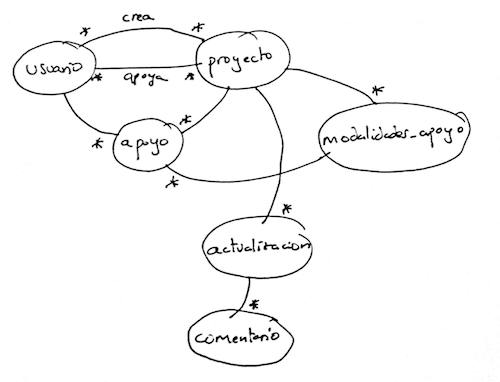 crea
* *
usuario
proyecto
* apoya *
*
* apoyo *
modalidades_apoyo
*
*
actualizacion
*
comentario